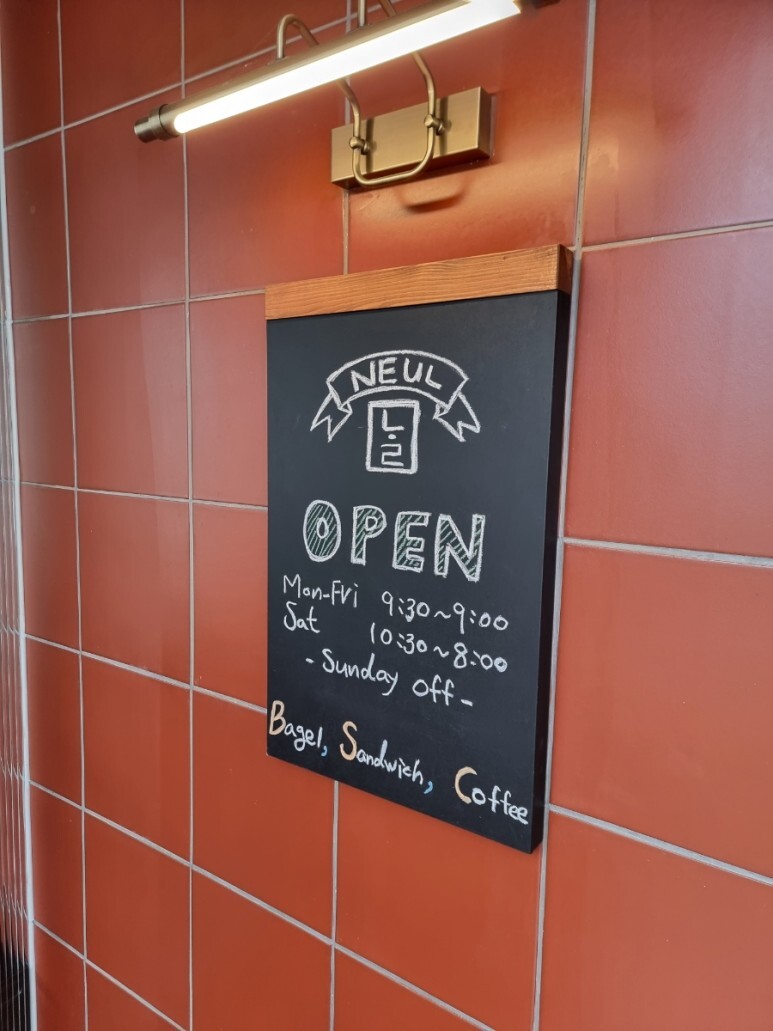 NEUL
느·ㄹ
OPEN
Mon-Fri 9:30~9:00
Sat 10:30~8:00
- Sunday off -
Bagel, Sandwich, Coffee